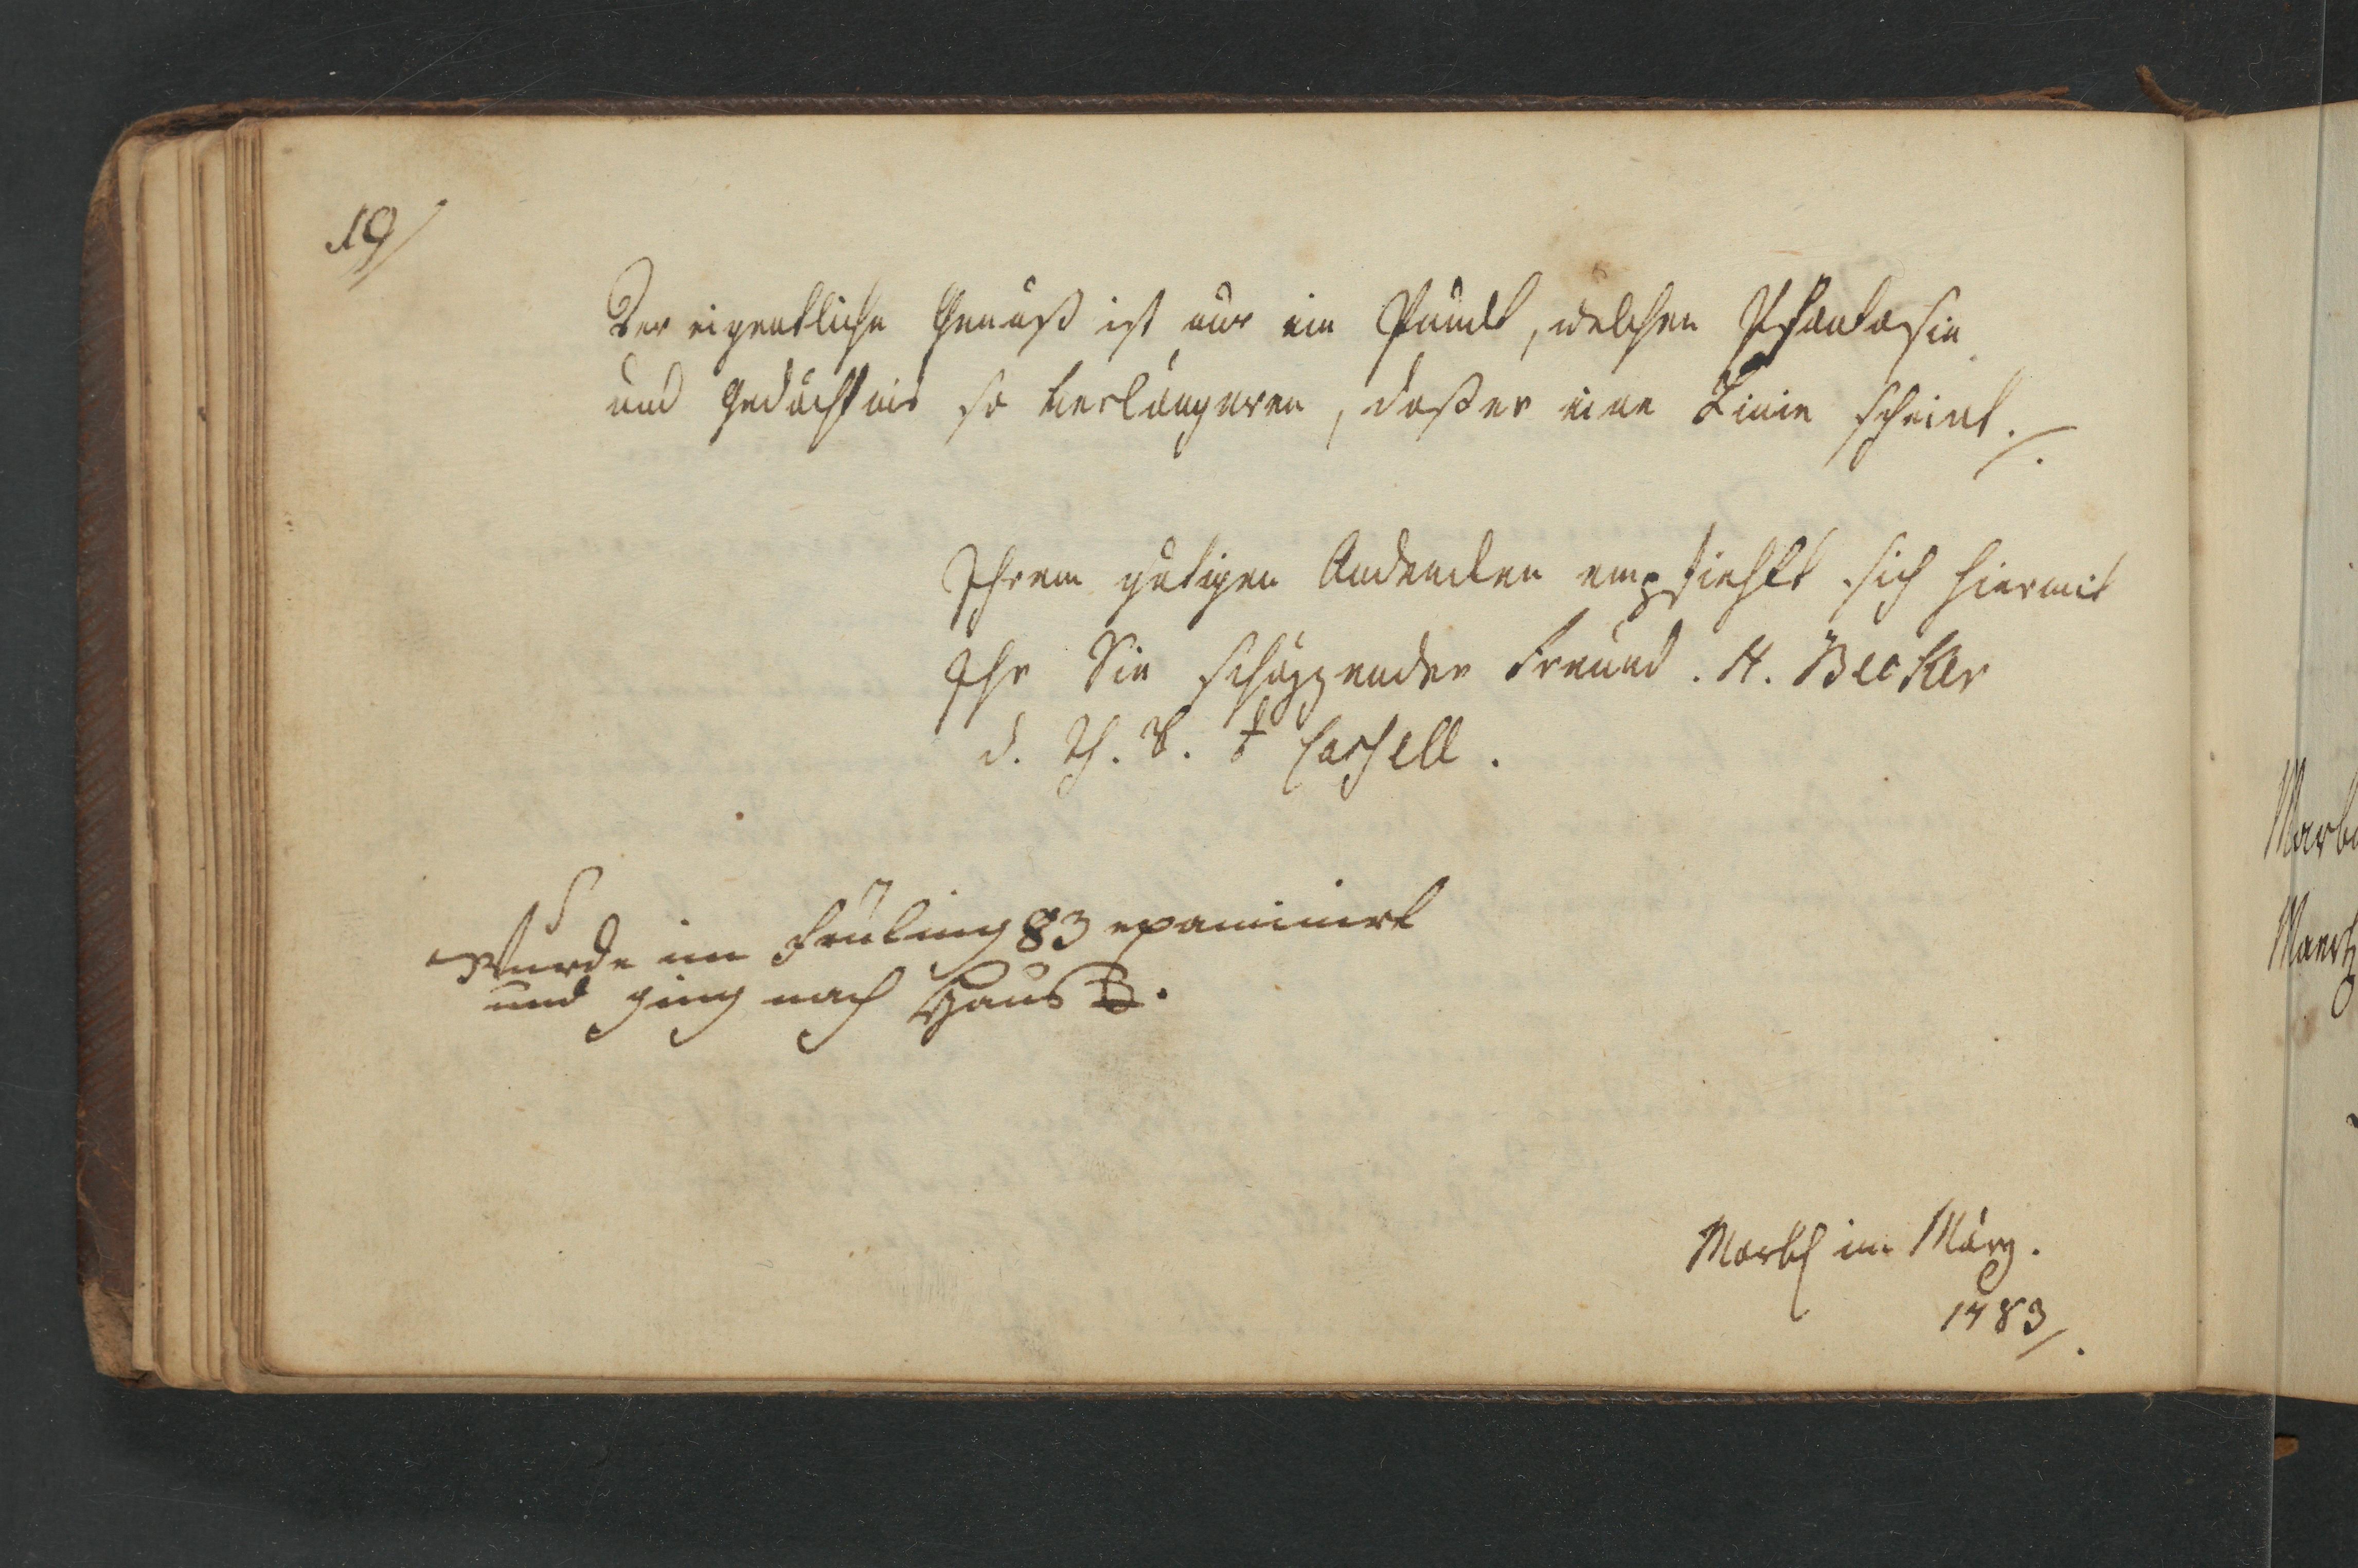 19/
Der eigentliche Genuß ist nur ein Punckt, welchen Phantasie
und Gedächtnis so verlängeren, daß er eine Linie scheint./.
Ihrem gütigen Andencken empfiehlt sich hiermit
Ihr Sie schäzzender Freund. H. Becker
d. Th. B. Cassell.
Wurde im Früling 83 examinirt
und ging nach Haus B.
Marbg im März.
1783/.
Marb
Maertz